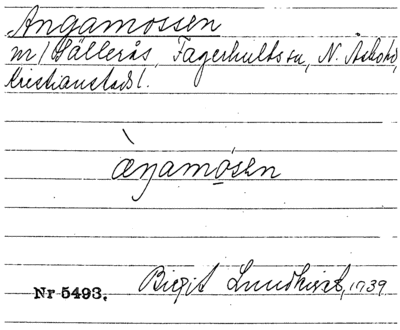 Angamossen
m / Hällerås, Fagerhults sn, N. Åsbohd,
Kristianstads l.
àŋamósen
Nr 5493. Birgit Lundkvist, 1739